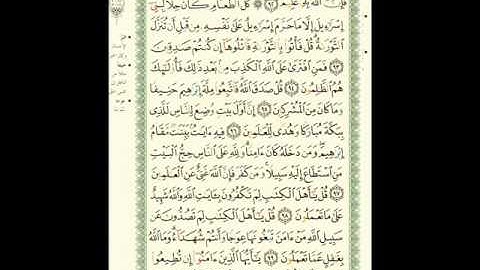 فَإِنَّ ٱللَّهَ بِهِۦ عَلِيمٌ ٩٢ كُلُّ ٱلطَّعَامِ كَانَ حِلًّا لِّبَنِىٓ
إِسْرَٰٓءِيلَ إِلَّا مَا حَرَّمَ إِسْرَٰٓءِيلُ عَلَىٰ نَفْسِهِۦ مِن قَبْلِ أَن تُنَزَّلَ
ٱلتَّوْرَىٰةُ قُلْ فَأْتُوا۟ بِٱلتَّوْرَىٰةِ فَٱتْلُوهَآ إِن كُنتُمْ صَٰدِقِينَ
٩٣ فَمَنِ ٱفْتَرَىٰ عَلَى ٱللَّهِ ٱلْكَذِبَ مِنۢ بَعْدِ ذَٰلِكَ فَأُو۟لَٰٓئِكَ
هُمُ ٱلظَّٰلِمُونَ ٩٤ قُلْ صَدَقَ ٱللَّهُ فَٱتَّبِعُوا۟ مِلَّةَ إِبْرَٰهِيمَ حَنِيفًا
وَمَا كَانَ مِنَ ٱلْمُشْرِكِينَ ٩٥ إِنَّ أَوَّلَ بَيْتٍ وُضِعَ لِلنَّاسِ لَلَّذِى
بِبَكَّةَ مُبَارَكًا وَهُدًى لِّلْعَٰلَمِينَ ٩٦ فِيهِ ءَايَٰتٌۢ بَيِّنَٰتٌ مَّقَامُ
إِبْرَٰهِيمَ وَمَن دَخَلَهُۥ كَانَ ءَامِنًا وَلِلَّهِ عَلَى ٱلنَّاسِ حِجُّ ٱلْبَيْتِ
مَنِ ٱسْتَطَاعَ إِلَيْهِ سَبِيلًا وَمَن كَفَرَ فَإِنَّ ٱللَّهَ غَنِىٌّ عَنِ ٱلْعَٰلَمِينَ
٩٧ قُلْ يَٰٓأَهْلَ ٱلْكِتَٰبِ لِمَ تَكْفُرُونَ بِـَٔايَٰتِ ٱللَّهِ وَٱللَّهُ شَهِيدٌ
عَلَىٰ مَا تَعْمَلُونَ ٩٨ قُلْ يَٰٓأَهْلَ ٱلْكِتَٰبِ لِمَ تَصُدُّونَ عَن
سَبِيلِ ٱللَّهِ مَنْ ءَامَنَ تَبْغُونَهَا عِوَجًا وَأَنتُمْ شُهَدَآءُ وَمَا ٱللَّهُ
بِغَٰفِلٍ عَمَّا تَعْمَلُونَ ٩٩ يَٰٓأَيُّهَا ٱلَّذِينَ ءَامَنُوٓا۟ إِن تُطِيعُوا۟